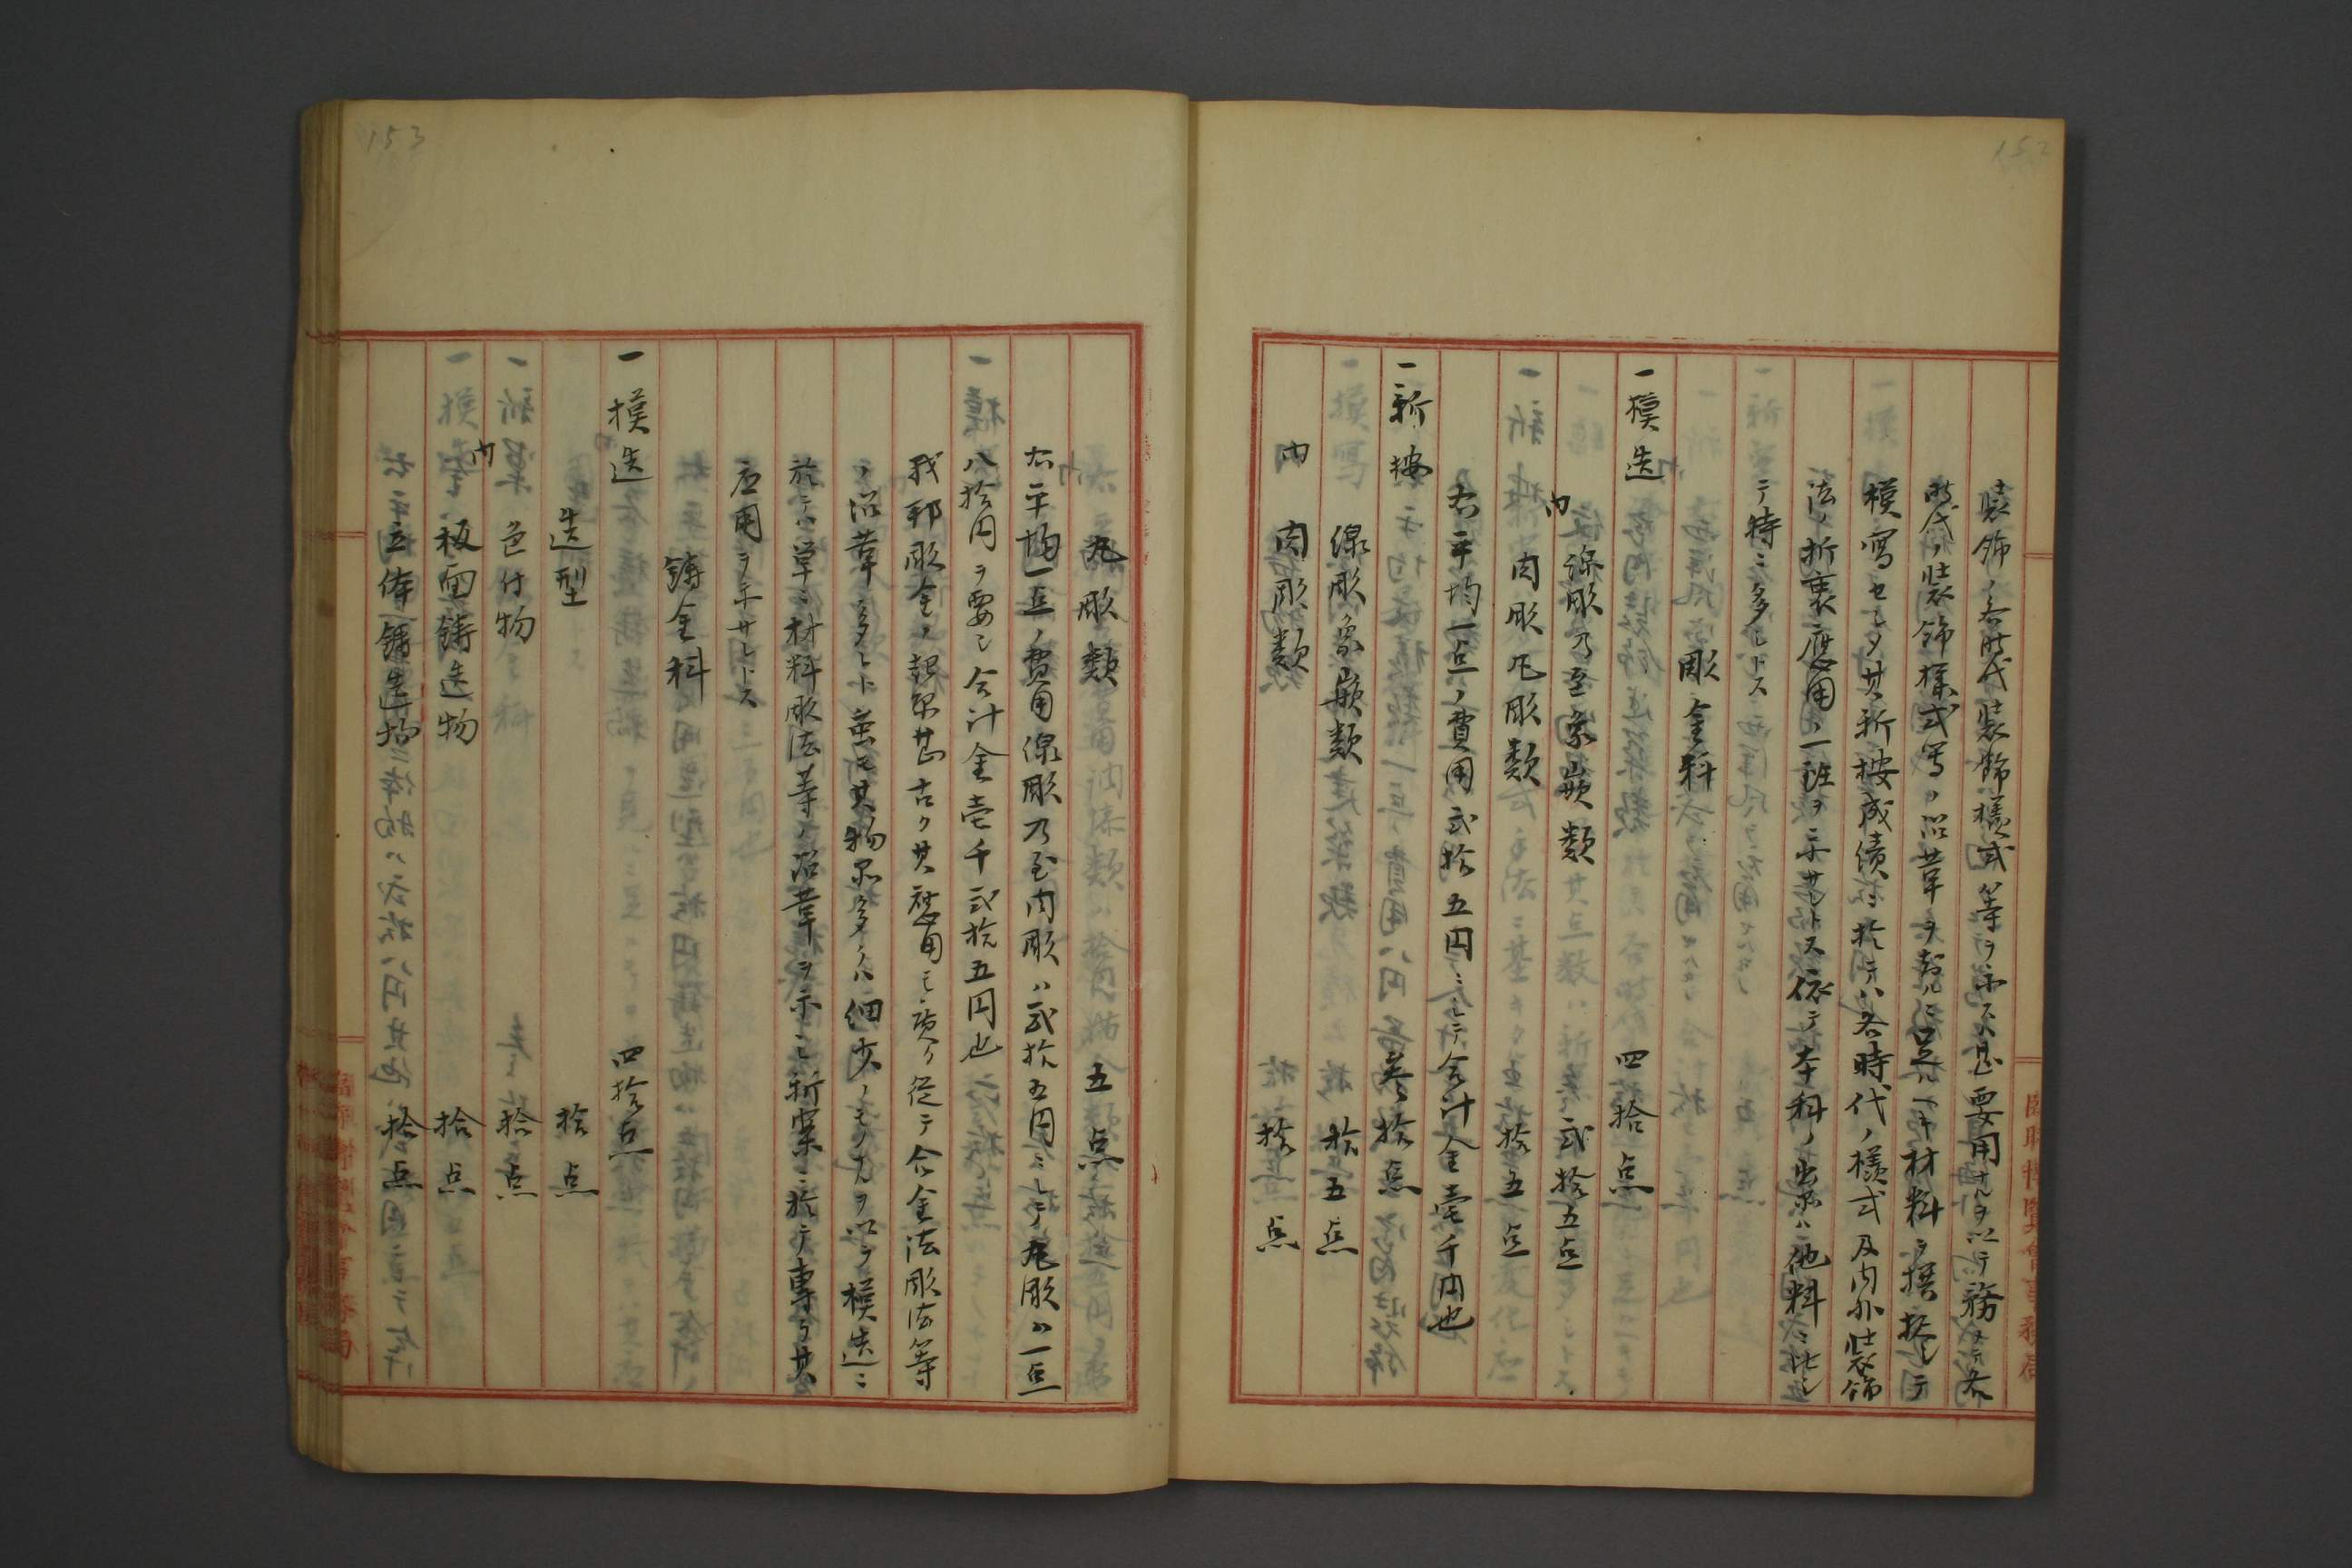 152
装飾ノ各時代装飾様式等ヲ示スハ甚要用ナルヲ以テ務メテ各
時代ノ装飾様式等ノ沿革ヲ知ルニ足ルヘキ材料ヲ撰択シテ
模写セシメ其新按成績ニ於テハ各時代ノ様式及内外装飾
法ノ折衷應用ノ一班ヲ示サントス依テ本科ノ出品ハ他科ニ比シ
テ特ニ多シトス
彫金科
一模造 四拾点
内 線彫乃至象嵌類 弐拾五点
肉彫丸彫類 拾五点
右平均一点ノ費用弐拾五円ニシテ合計金壱千円也
一新按 参拾点
線彫象嵌類 拾五点
内 肉彫類 拾点
153
丸彫類 五点
右平均一点ノ費用線彫乃至肉彫ハ弐拾五円ニシテ丸彫ハ一点
八拾円ヲ要シ合計金壱千弐拾五円也
我邦彫金ノ起原甚古ク其應用モ広ク従テ合金法彫法等
ノ沿革多シト雖モ其物品多クハ細少ノモノナルヲ以テ模造ニ
於テハ単ニ材料彫法等ノ沿革ヲ示シ新案ニ於テ専ラ其
応用ヲ示サントス
鋳金科
一模造 四拾点
造型 拾点
色付物 拾点
内 板面鋳造物 拾点
立体鋳造物 拾点